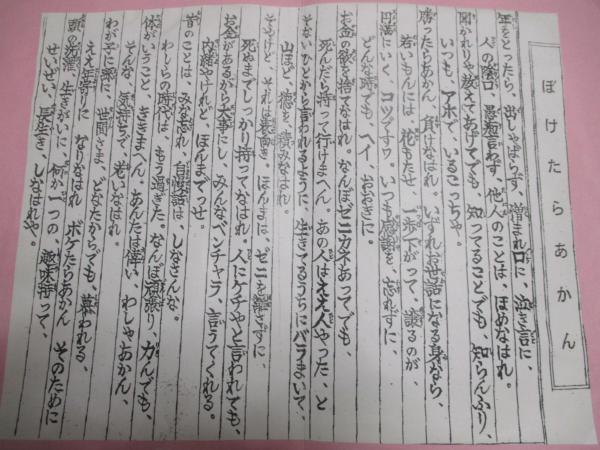 ぼけたらあかん
年をとったら、出しゃばらず、憎まれ口に、泣き言に、
人の陰口、愚痴言わず、他人のことは、ほめなはれ。
聞かれりゃ教えてあげてでも、知ってることでも、知らんふり、
いつも、アホで、いるこっちゃ。
勝ったらあかん、負けなはれ。いずれお世話になる身なら、
若いもんには、花もたせ、一歩下がって、譲るのが、
円満にいく、コツですワ。いつも感謝を、忘れずに、
どんな時でも、ヘイ、おおきに。
お金の欲を捨てなはれ。なんぼゼニカネあってでも、
死んだら持って行けまへん。あの人はええ人やった、と
そないひとから言われるように、生きてるうちにバラまいて、
山ほど、徳を、積みなはれ。
そやけど、それは表向き。ほんまは、ゼニを離さずに、
死ぬまでしっかり持ってなはれ。人にケチやと言われても、
お金があるから大事にし、みんなベンチャラ、言うてくれる。
内緒やけれど、ほんまでっせ。
昔のことは、みな忘れ、自慢話は、しなさんな。
わしらの時代は、もう過ぎた。なんぼ頑張り、力んでも、
体がいうこと、ききまへん。あんたは偉い、わしゃあかん、
そんな気持ちで、老いなはれ。
わが子に孫に、世間さま、どなたからでも、慕われる、
ええ年寄りに なりなはれ ボケたらあかん そのために
頭の洗濯、生きがいに、何か一つの、趣味持って、
せいぜい、長生き、しなはれや。